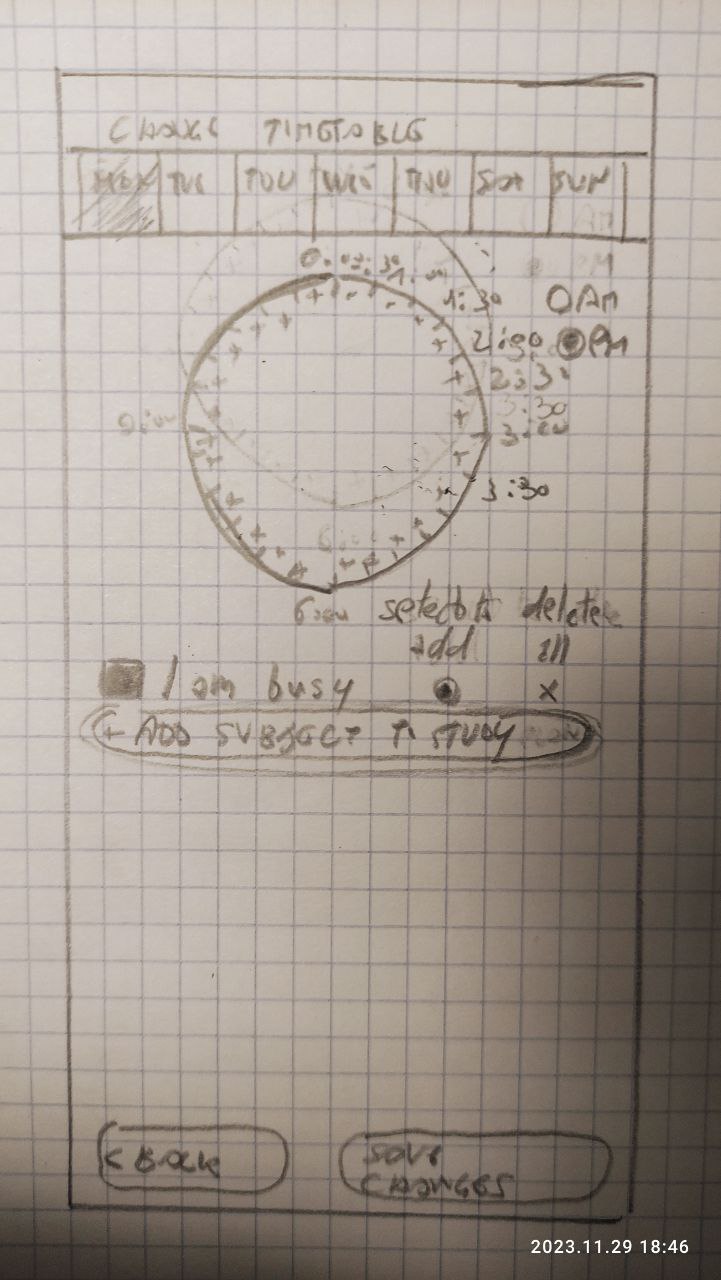 CHANGE TIMETABLE
MON TUE TUU WED THU SAT SUN
0:00 0:30
1:30 O AM
2:00 PM
2:30
3:30
3:00
9:00
3:30
6:00
6:00 select to delete
add all
I am busy x
+ ADD SUBJECT TO STUDY
< BACK SAVE
CHANGES
2023.11.29 18:46